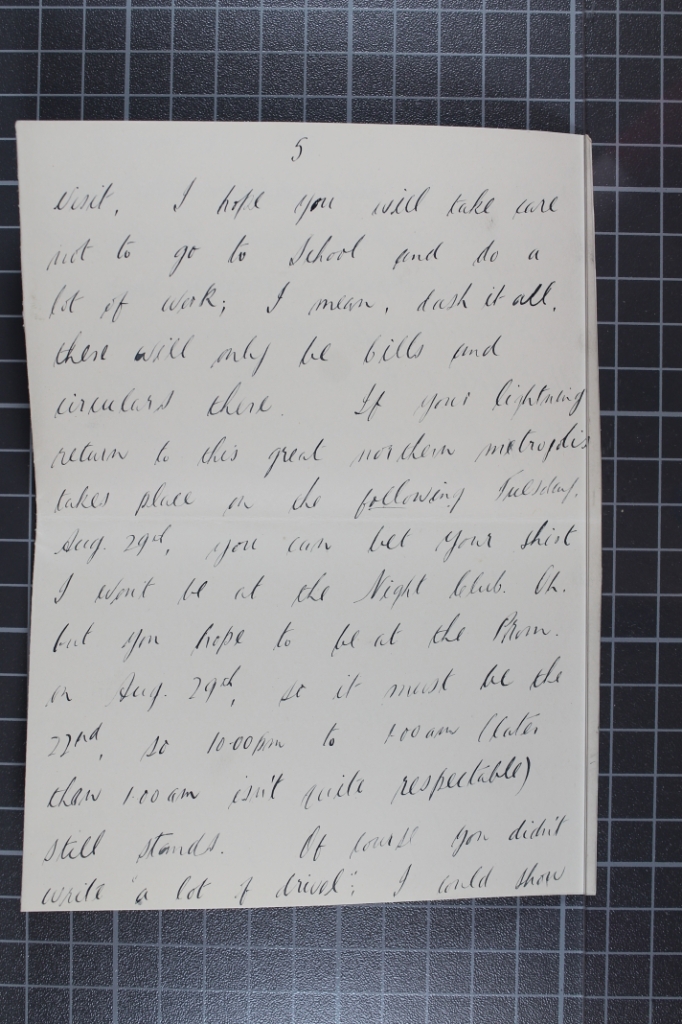 5
visit. I hope you will take care
not to go to School and do a
lot of work; I mean, dash it all,
there will only be bills and
circulars there. If your lightning
return to this great northern metropolis
takes place on the following Tuesday,
Aug. 29th, you can bet your shirt
I won't be at the Night Club. Oh,
but you hope to be at the Prom.
on Aug. 29th, so it must be the
22nd, so 10.00pm to 1.00am (later
than 1.00am isn't quite respectable)
still stands. Of course you didn't
write "a lot of drivel"; I could show